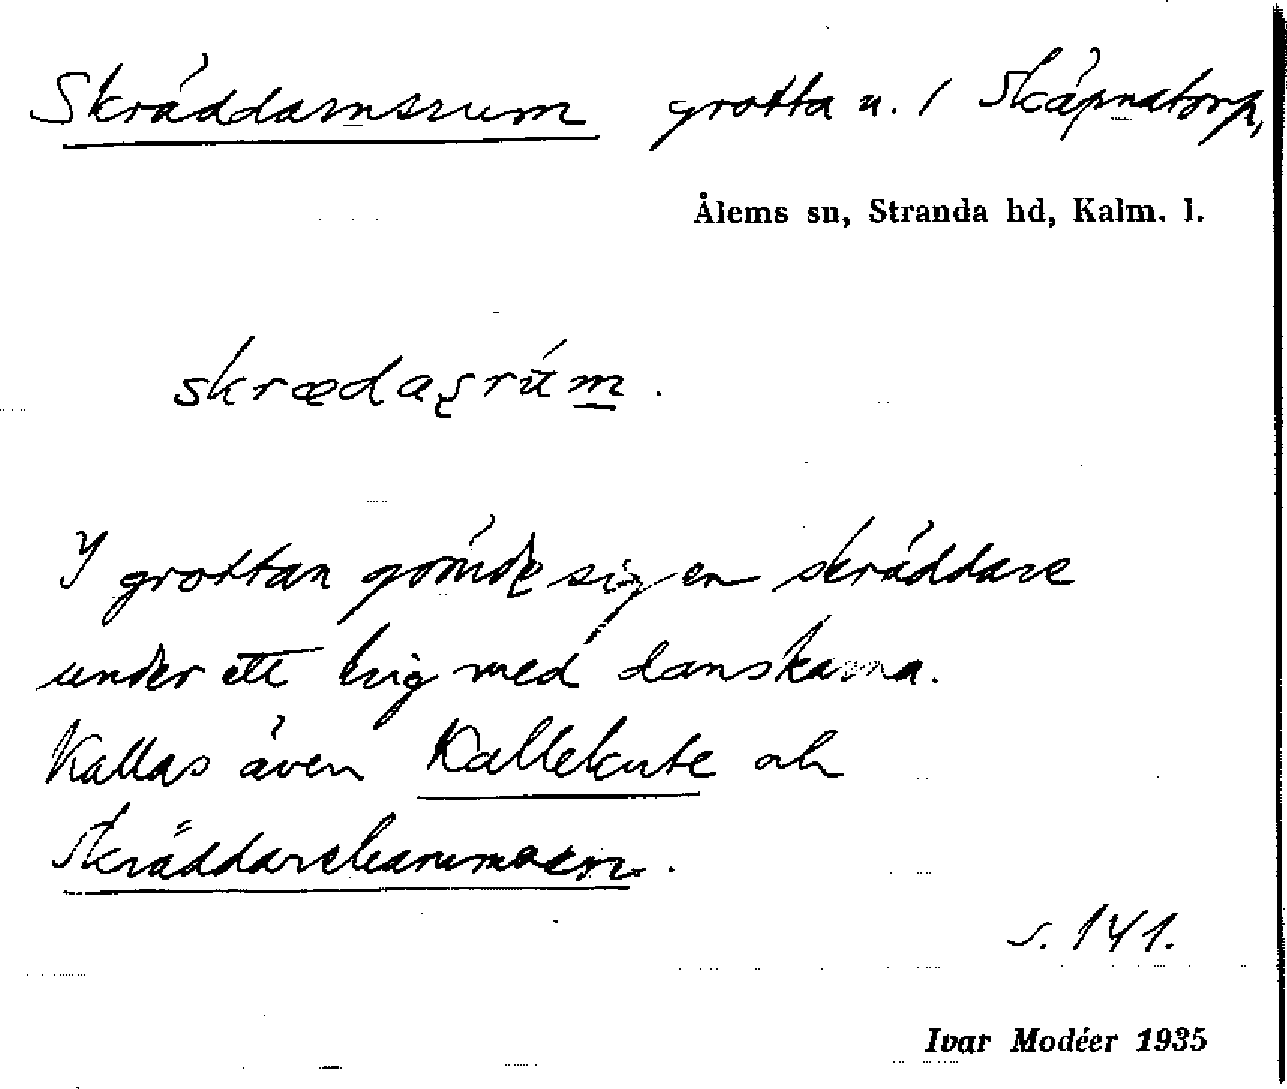 Skräddarnsrum grotta u. 1 Skäpnatorp,
Ålems sn, Stranda hd, Kalm. l.
skrædaʂrúm.
I grottan gömde sig en skräddare
under ett krig med danskarna.
Kallas även Kallekute och
Skräddarekammaren.
s. 141.
Ivar Modéer 1935